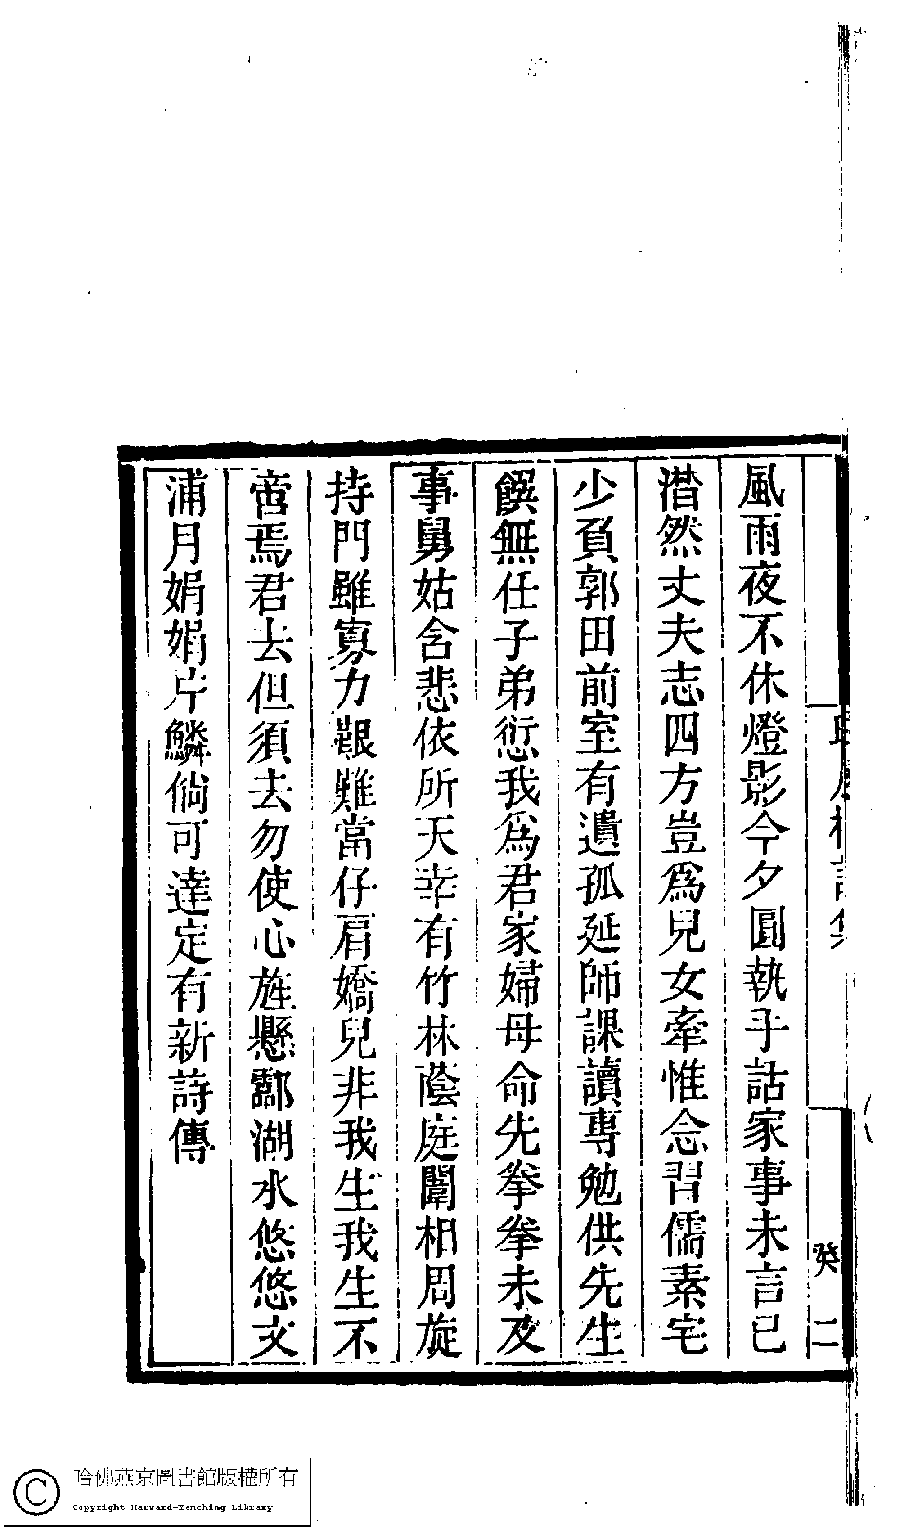 風雨夜不休燈影今夕圓執手詁家事未言已
潸然丈夫志四方豈爲兒女牽惟念習儒素宅
少負郭田前室有遺孤延師課讀專勉供先生
饌無任子弟愆我爲君家婦母命先拳拳未及
事舅姑含悲依所天幸有竹林蔭庭闈相周旋
持門雖寡力艱難當仔肩嬌兒非我生我生不
啻焉君去但須去勿使心旌懸酃湖水悠悠文
浦月娟娟片鱗倘可達定有新詩傳
癸 二
哈佛燕京圖書館版權所有
Copyright Harvard-Yenching Library